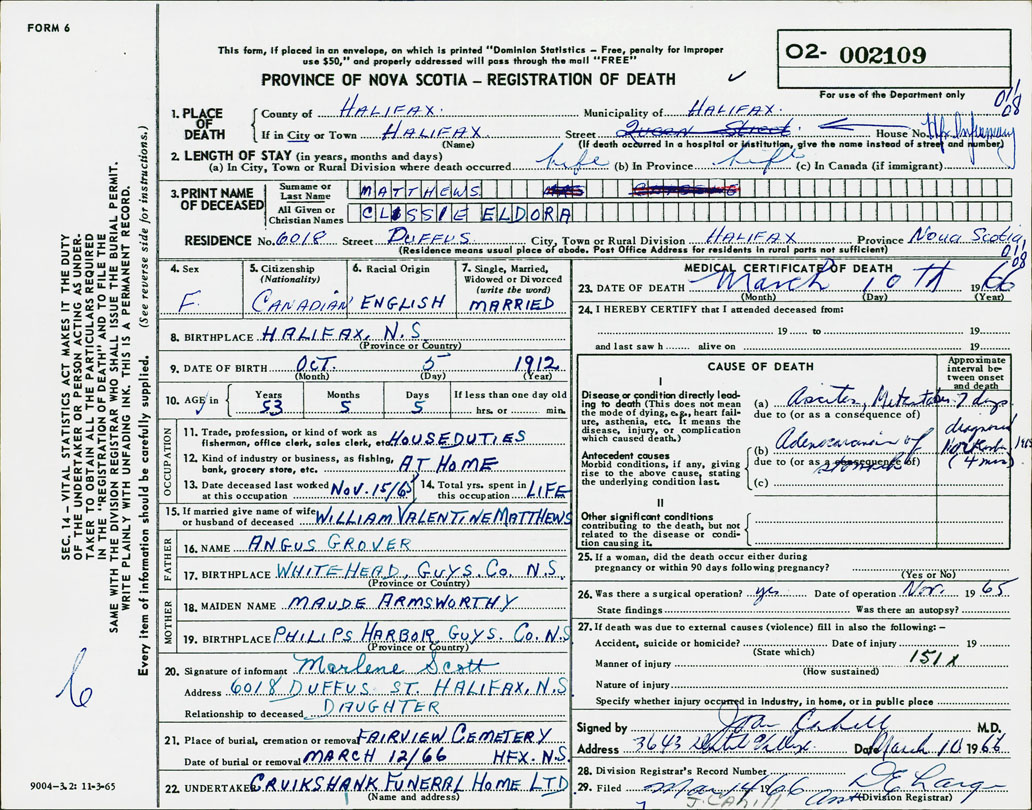 FORM 6
This form, if placed in an envelope, on which is printed "Dominion Statistics – Free, penalty for improper
use $50," and properly addressed will pass through the mail "FREE"
PROVINCE OF NOVA SCOTIA – REGISTRATION OF DEATH
02- 002109
For use of the Department only
011
08
1. PLACE OF DEATH
County of HALIFAX. Municipality of HALIFAX.
If in City or Town HALIFAX (Name) Street Queen Street. House No. Hfx. Infirmary
(If death occurred in a hospital or institution, give the name instead of street and number)
2. LENGTH OF STAY (in years, months and days)
(a) In City, Town or Rural Division where death occurred life (b) In Province life (c) In Canada (if immigrant)
3. PRINT NAME OF DECEASED
Surname or Last Name MATTHEWS MRS
All Given or Christian Names CLISSIE ELDORA
RESIDENCE No. 6018 Street DUFFUS City, Town or Rural Division HALIFAX Province NOVA SCOTIA
(Residence means usual place of abode. Post Office Address for residents in rural parts not sufficient)
011
08
4. Sex F.
5. Citizenship (Nationality) CANADIAN
6. Racial Origin ENGLISH
7. Single, Married, Widowed or Divorced (write the word) MARRIED
8. BIRTHPLACE HALIFAX, N.S.
(Province or Country)
9. DATE OF BIRTH OCT. 5 1912
(Month) (Day) (Year)
10. AGE in Years 53 Months 5 Days 5 If less than one day old hrs. or min.
OCCUPATION
11. Trade, profession, or kind of work as
fisherman, office clerk, sales clerk, etc. HOUSEDUTIES
12. Kind of industry or business, as fishing,
bank, grocery store, etc. AT HOME
13. Date deceased last worked at this occupation NOV. 15/65 14. Total yrs. spent in this occupation LIFE
15. If married give name of wife
or husband of deceased WILLIAM VALENTINE MATTHEWS
FATHER
16. NAME ANGUS GROVER
17. BIRTHPLACE WHITEHEAD, GUYS. CO. N.S.
(Province or Country)
MOTHER
18. MAIDEN NAME MAUDE ARMSWORTHY
19. BIRTHPLACE PHILIPS HARBOR GUYS. CO. N.S
(Province or Country)
20. Signature of informant Marlene Scott
Address 6018 DUFFUS ST. HALIFAX, N.S.
Relationship to deceased DAUGHTER
21. Place of burial, cremation or removal FAIRVIEW CEMETERY
Date of burial or removal MARCH 12/66 HFX. N.S.
22. UNDERTAKER CRUIKSHANK FUNERAL HOME LTD
(Name and address)
MEDICAL CERTIFICATE OF DEATH
23. DATE OF DEATH March 10TH 1966
(Month) (Day) (Year)
24. I HEREBY CERTIFY that I attended deceased from:
19 to 19
and last saw h alive on 19
CAUSE OF DEATH
Approximate interval between onset and death
I
Disease or condition directly leading to death (This does not mean
the mode of dying, e.g., heart failure, asthenia, etc. It means the
disease, injury, or complication
which caused death.)
(a) Ascites, 7 days
due to (or as a consequence of)
Antecedent causes
Morbid conditions, if any, giving
rise to the above cause, stating
the underlying condition last.
(b) Adenocarcinoma of stomach
diagnosed (4 mos)
due to (or as a consequence of)
(c)
II
Other significant conditions
contributing to the death, but not
related to the disease or condition causing it.
25. If a woman, did the death occur either during
pregnancy or within 90 days following pregnancy?
(Yes or No)
26. Was there a surgical operation? yes Date of operation Nov. 1965
State findings Was there an autopsy?
27. If death was due to external causes (violence) fill in also the following: –
Accident, suicide or homicide? Date of injury 19
(State which)
151X
Manner of injury
(How sustained)
Nature of injury
Specify whether injury occurred in industry, in home, or in public place
Signed by Joan Cahill M.D.
Address 3643 Date March 10 1966
28. Division Registrar's Record Number
29. Filed Mar 14 1966
(Division Registrar)
J. CAHILL
SEC. 14 – VITAL STATISTICS ACT MAKES IT THE DUTY
OF THE UNDERTAKER OR PERSON ACTING AS UNDERTAKER TO OBTAIN ALL THE PARTICULARS REQUIRED
IN THE "REGISTRATION OF DEATH" AND TO FILE THE
SAME WITH THE DIVISION REGISTRAR WHO SHALL ISSUE THE BURIAL PERMIT.
WRITE PLAINLY WITH UNFADING INK. THIS IS A PERMANENT RECORD.
Every item of information should be carefully supplied. (See reverse side for instructions.)
9004-3.2: 11-3-65